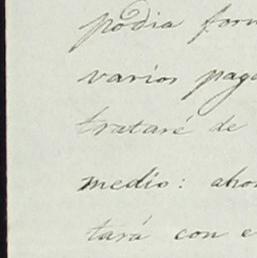 podia for
varios pag
trataré de
medio: aho
tará con e